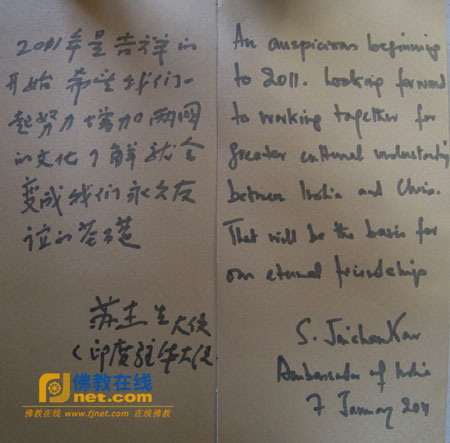 2011年是吉祥的
开始 希望我们一
起努力增加两国
的文化了解 就会
变成我们永久友
谊的基础
苏杰生大使
(印度驻华大使
An auspicious beginning
to 2011. Looking forward
to working together for
greater cultural understanding
between India and China.
That will be the basis for
our eternal friendship
S. Jaishankar
Ambassador of India
7 January 2011
佛教在线
net.com
佛教在线 www.fjnet.com 在线佛教